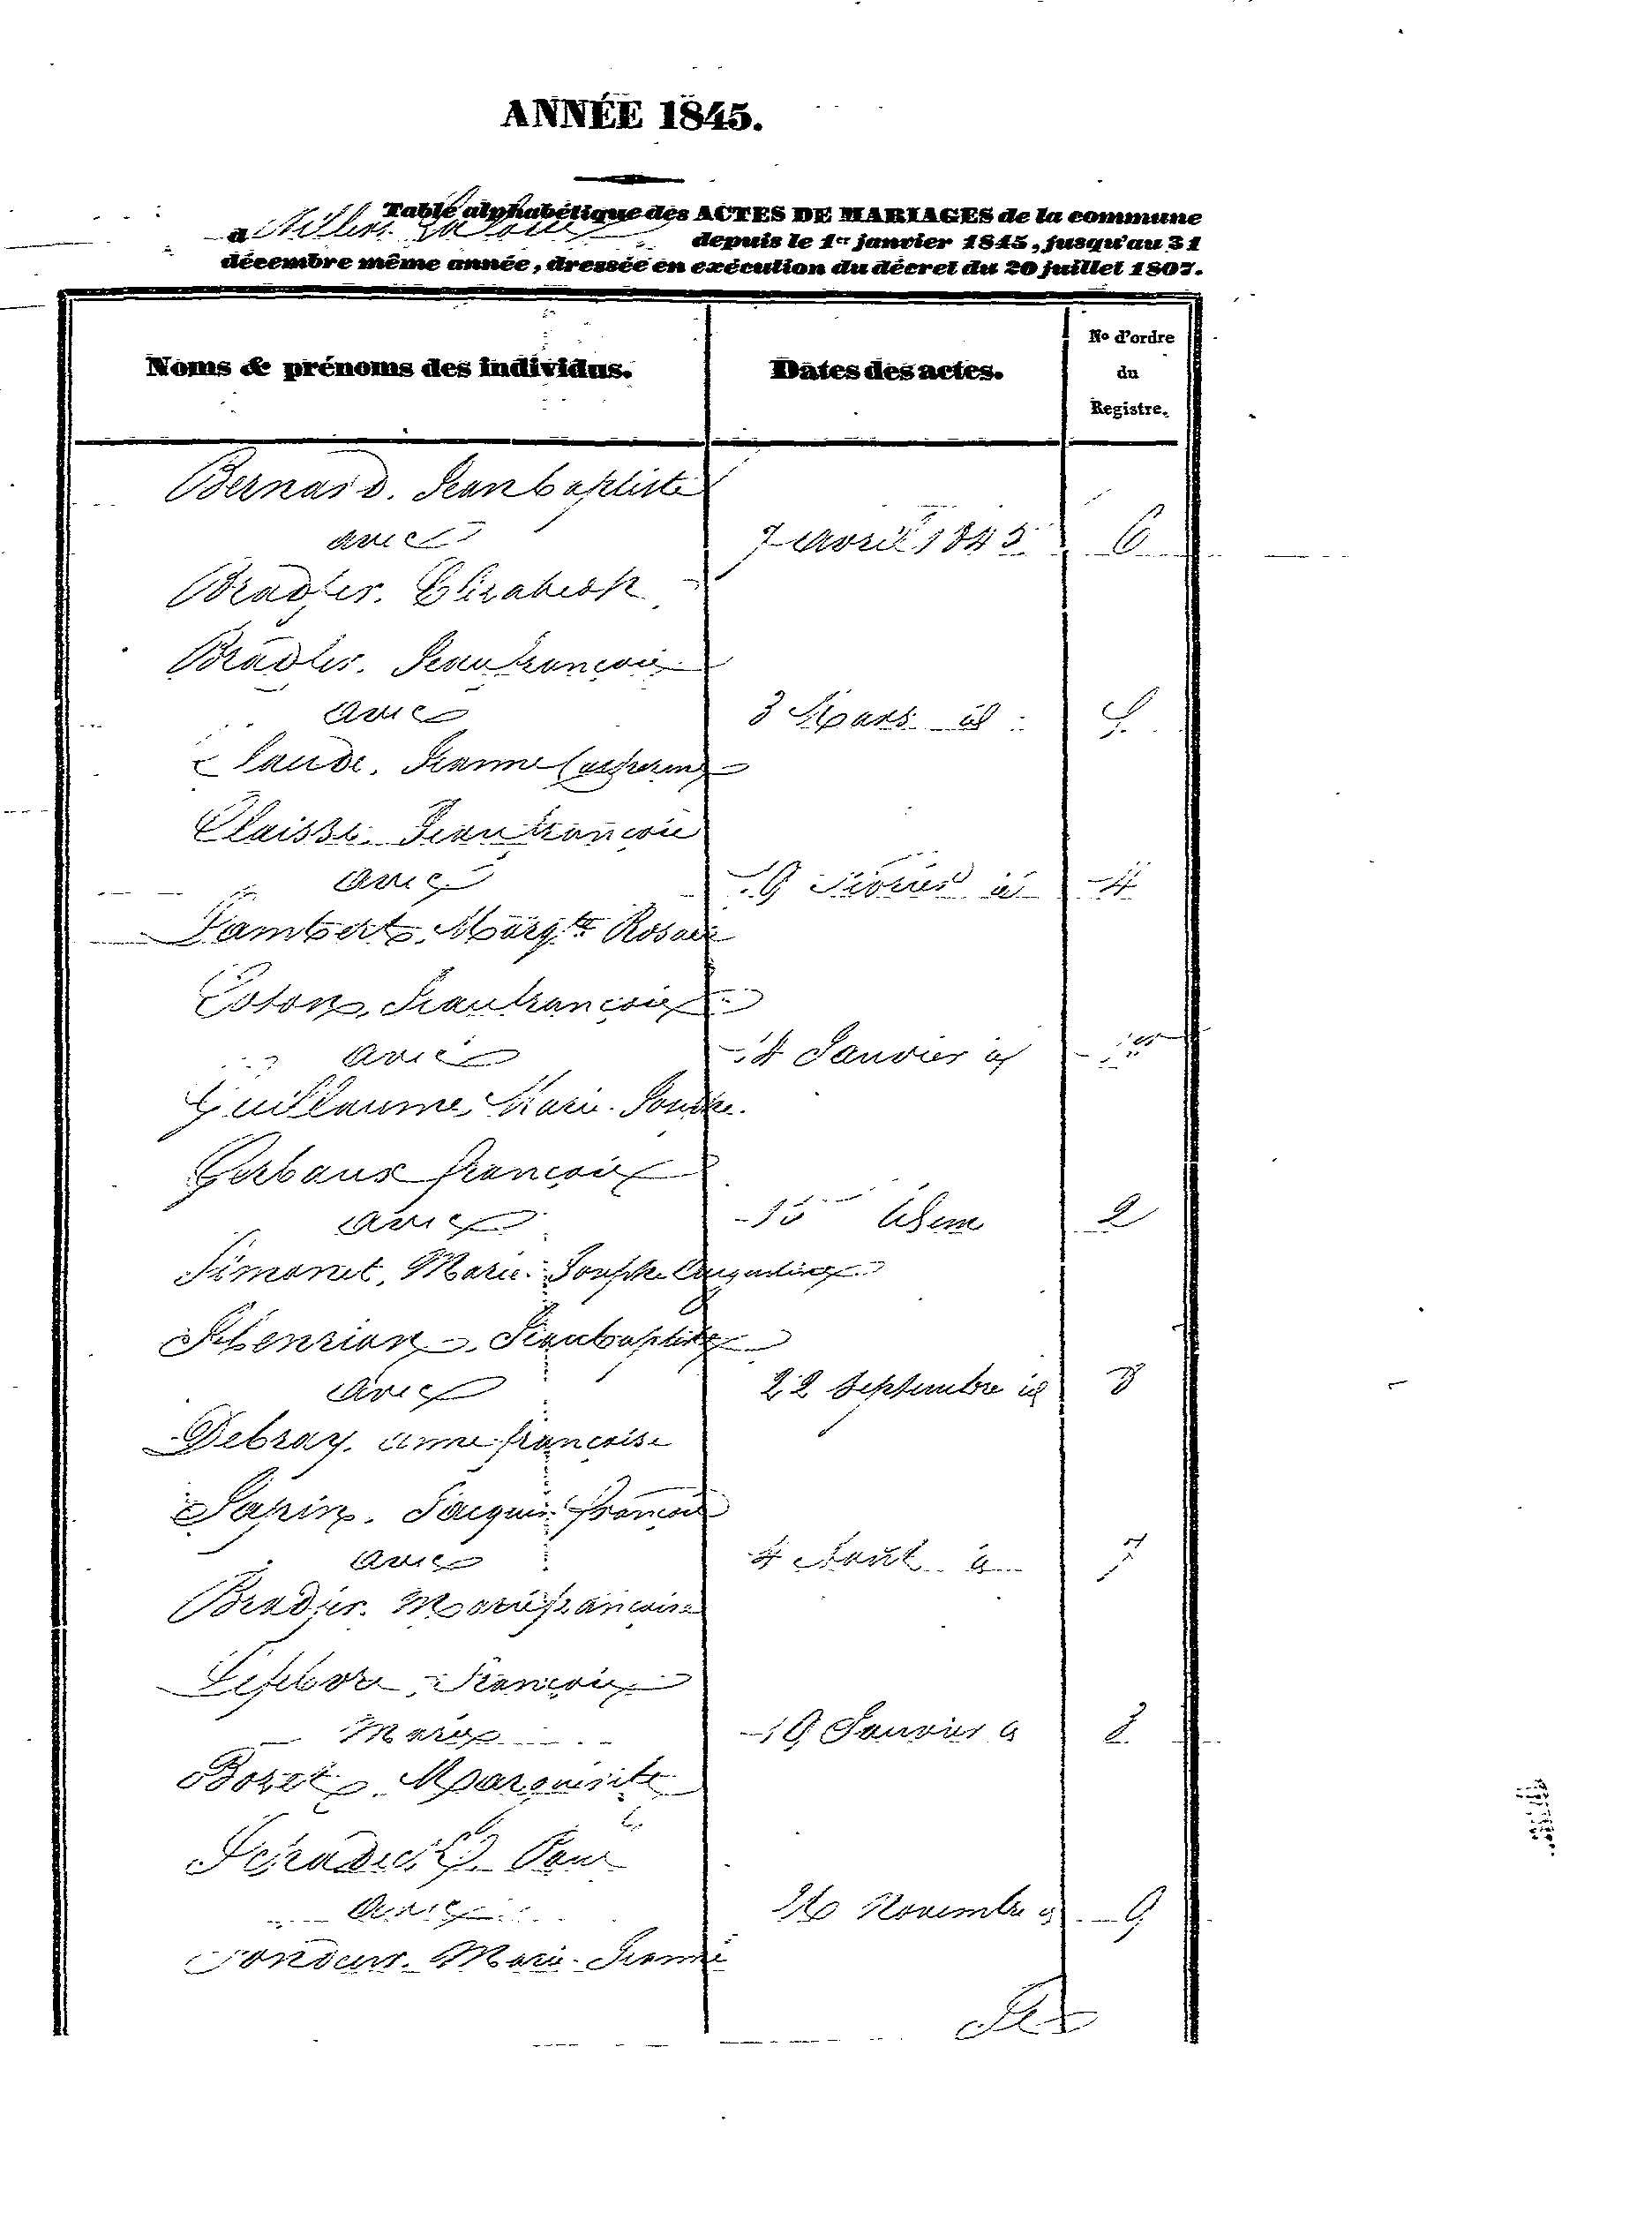 ANNÉE 1845.
Table alphabétique des ACTES DE MARIAGES de la commune
d
depuis le 1er janvier 1845, jusqu'au 31
décembre même année, dressée en exécution du décret du 20 juillet 1807.
Noms & prénoms des individus.
Dates des actes.
No d'ordre
du
Registre.
Bernard. Jean baptiste
avec
7 avril 1845
6
Bradier. Elizabeth
Bradier. Jean françois
avec
3 Mars id
5
Claude. Jeanne Catherine
Claisse. Jean françois
avec
19 février id
4
Lambert. Margte Rosalie
Coton. Jean françois
avec
14 Janvier id
1er
Guillaume Marie. Josephe.
Gerbaux françois
avec
15 idem
2
Simonet. Marie. Josephe Augustine
Henrion. Jean baptiste
avec
22 Septembre id
8
Debray. anne françoise
Lapin. Jacques françois
avec
4 Aout id
7
Bradier. Marie françoise
Lefebvre. François
Marie
19 Janvier id
3
Bozet. Marguerite
Paul
avec
Novembre id
9
Marie. Jeanne